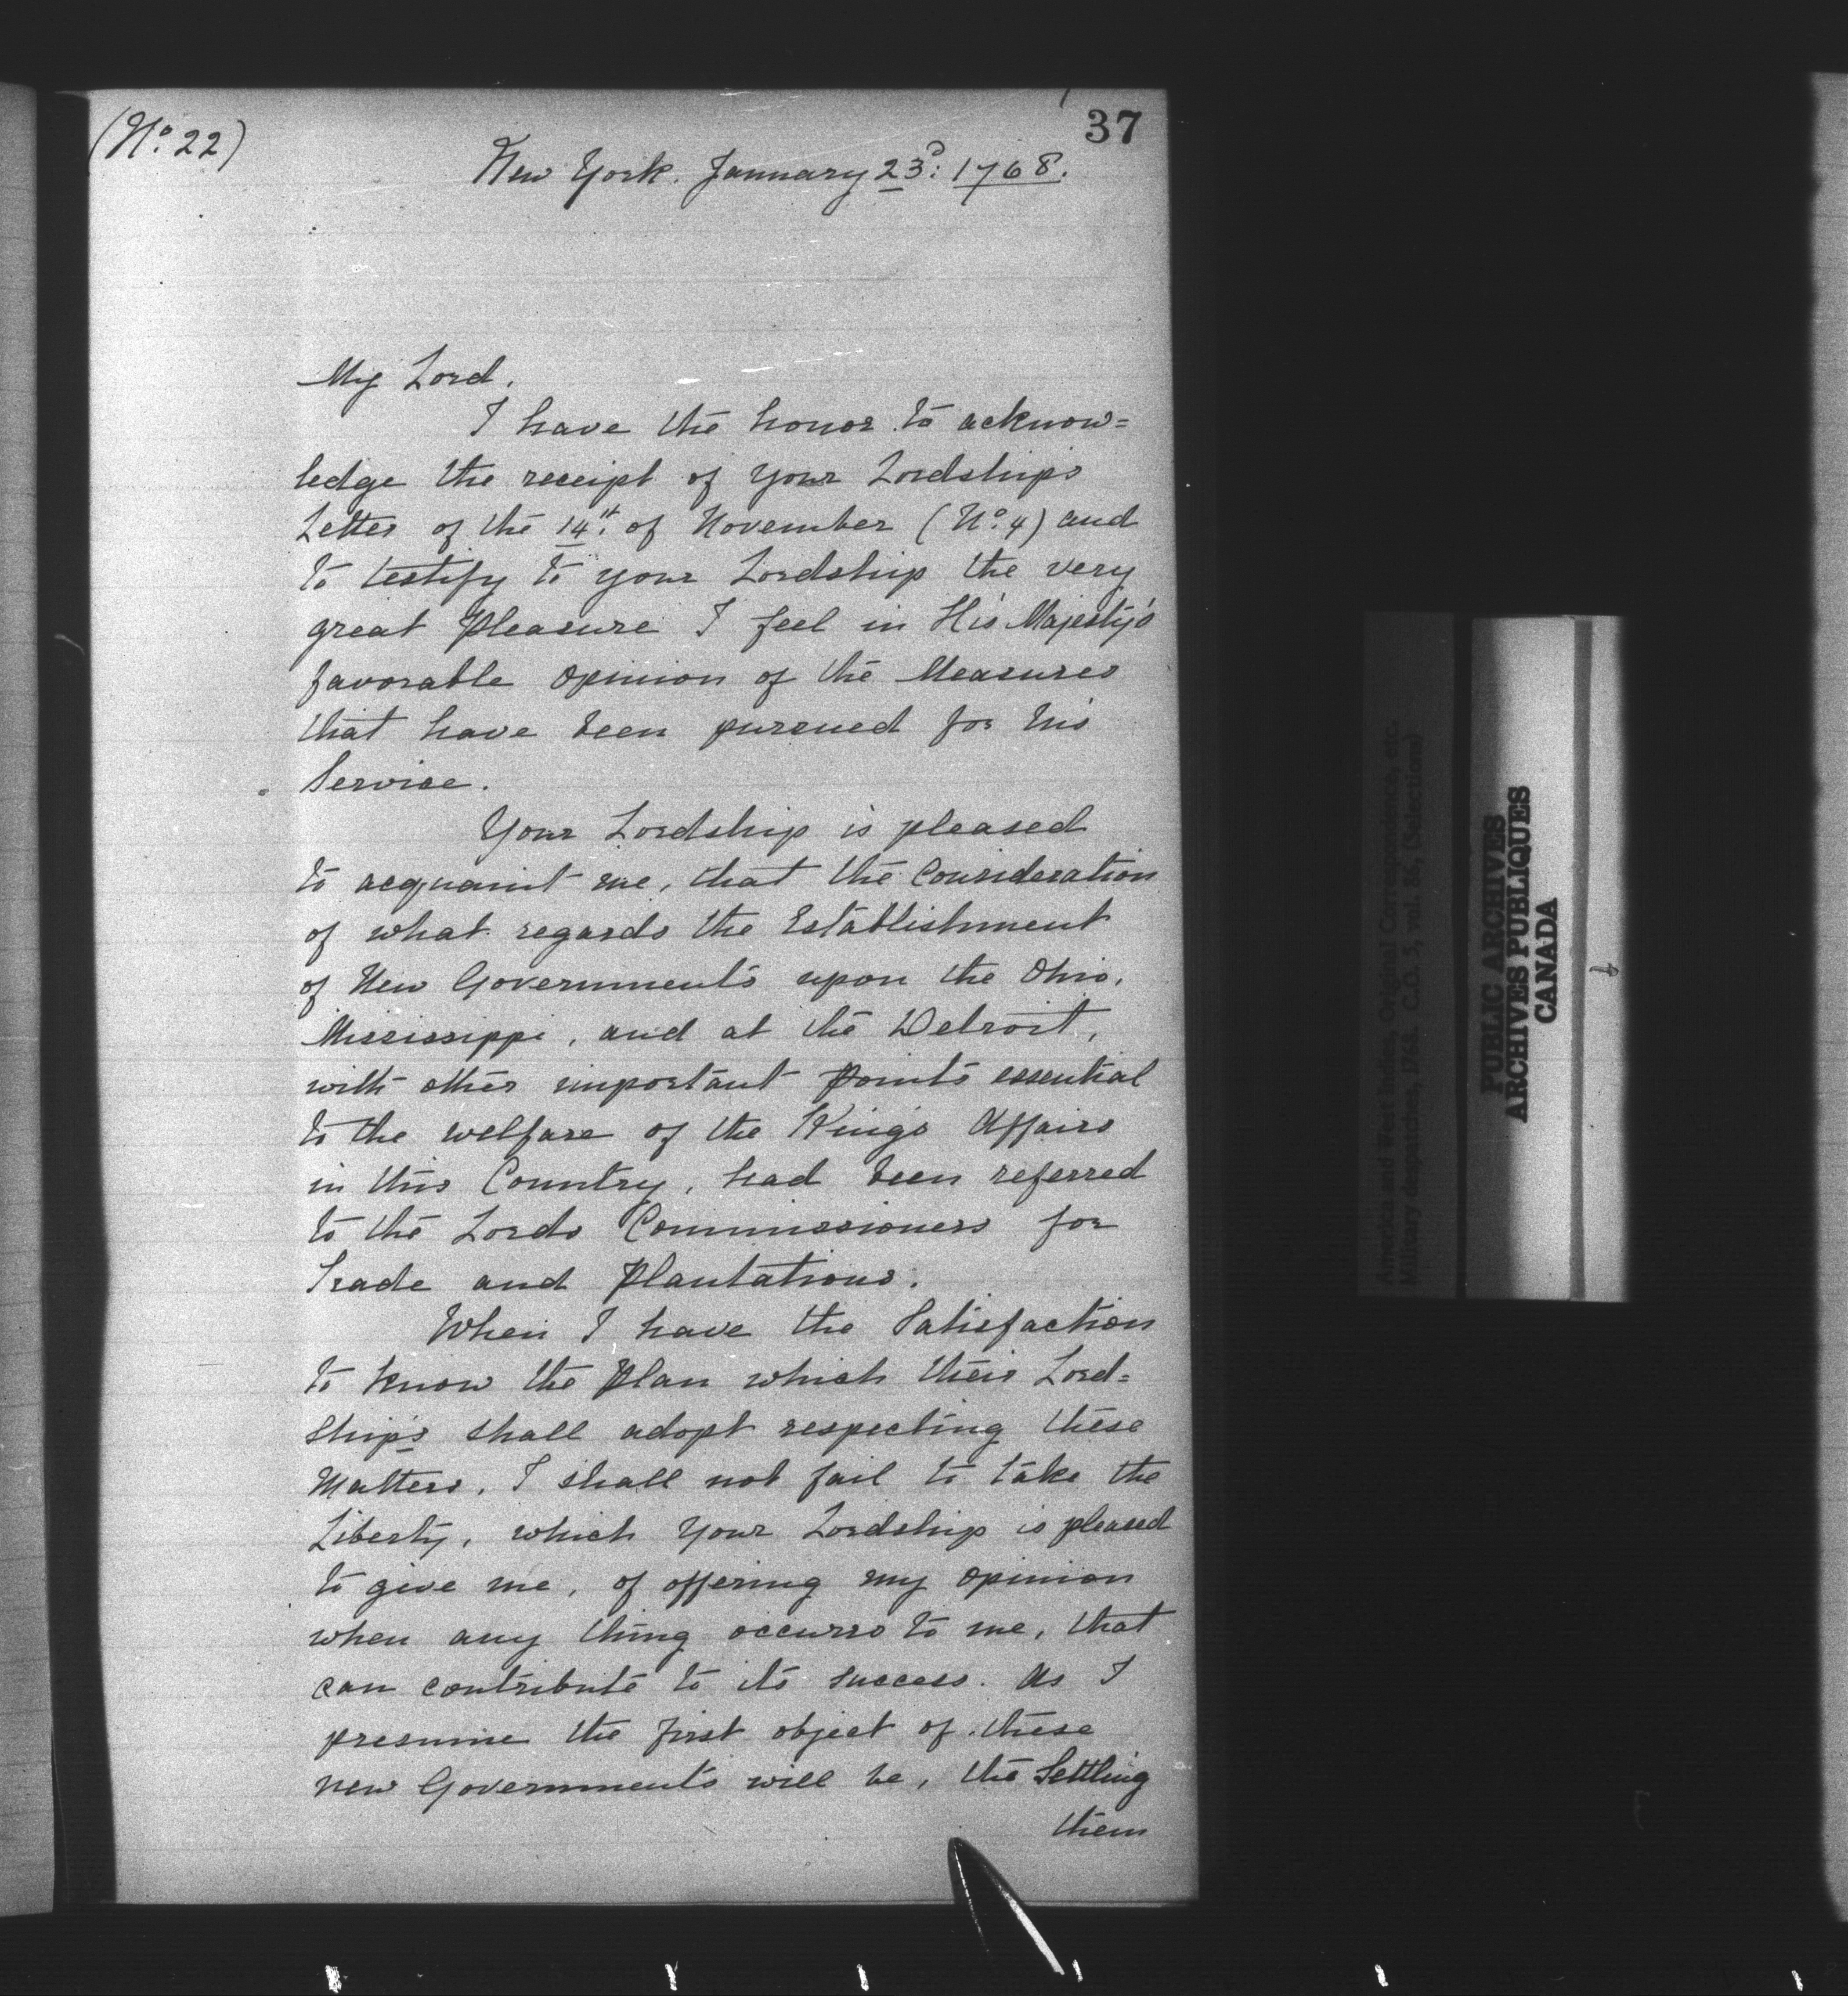 37
(No. 22)
New York. January 23d: 1768.
My Lord.
I have the honor to acknow=
ledge the receipt of your Lordships
Letter of the 14th. of November (No. 4) and
to testify to your Lordship the very
great Pleasure I feel in His Majesty's
favorable opinion of the Measures
that have been pursued for his
Service.
Your Lordship is pleased
to acquaint me, that the Consideration
of what regards the Establishment
of New Governments upon the Ohio,
Mississippi, and at the Detroit,
with other important Points essential
to the welfare of the King's Affairs
in this Country, had been referred
to the Lords Commissioners for
Trade and Plantations.
When I have the Satisfaction
to know the Plan which their Lord=
ships shall adopt respecting these
Matters, I shall not fail to take the
Liberty, which your Lordship is pleased
to give me, of offering my opinion
when any thing occurrs to me, that
can contribute to its success. As I
presume the first object of these
new Governments will be, the Settling
them
America and West Indies, Original Correspondence, etc.
Military despatches, 1768. C.O. 5, vol. 86, (Selection)
PUBLIC ARCHIVES
ARCHIVES PUBLIQUES
CANADA